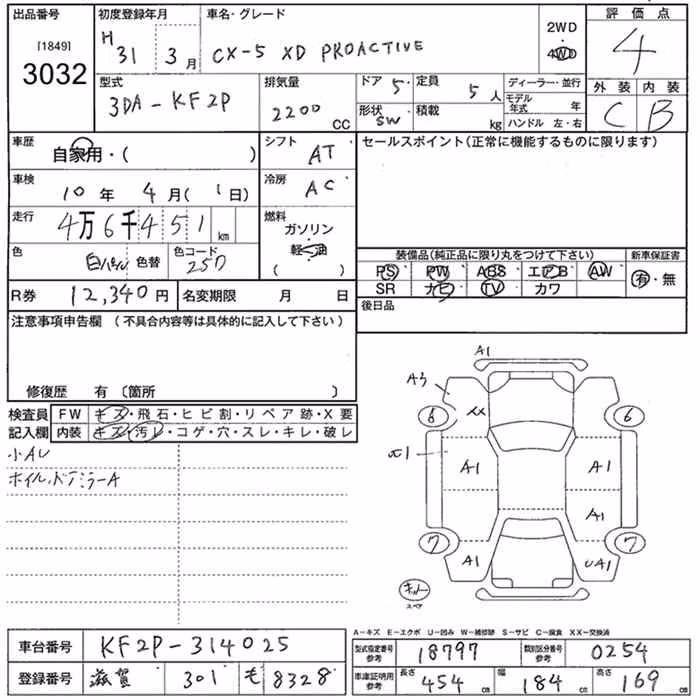 出品番号
[1849]
3032
初度登録年月
H 31 3月
車名・グレード
CX-5 XD PROACTIVE
2WD
4WD
評価点
4
型式
3DA-KF2P
排気量
2200 CC
ドア 5 定員 5人
形状 SW 積載 kg
ディーラー・並行
モデル年式 年
ハンドル 左・右
外装 内装
C B
車歴
自家用・( )
シフト
AT
車検
10年 4月( 1日)
冷房
AC
走行
4万6千451km
燃料
ガソリン
軽油
( )
色
白パール 色替
色コード
25D
R券 12,340円 名変期限 月 日
セールスポイント(正常に機能するものに限ります)
装備品(純正品に限り丸をつけて下さい)
新車保証書
PS PW ABS エアB AW
有・無
SR ナビ TV カワ
後日品
注意事項申告欄(不具合内容等は具体的に記入して下さい)
修復歴 有〔箇所 〕
検査員
記入欄
FW キズ・飛石・ヒビ割・リペア跡・X要
内装 キズ・汚レ・コゲ・穴・スレ・キレ・破レ
小AU
ホイル、ドアミラーA
A1
A3
XX
6 6
A1
A1
A1
7 7
A1
UA1
キット
スペア
A-キズ E-エクボ U-凹み W-補修跡 S-サビ C-腐食 XX-交換済
車台番号 KF2P-314025
登録番号 滋賀 301 も 8328
型式指定番号
参考
18797
類別区分番号
参考
0254
車庫証明用
参考
長さ 454cm 幅 184cm 高さ 169cm